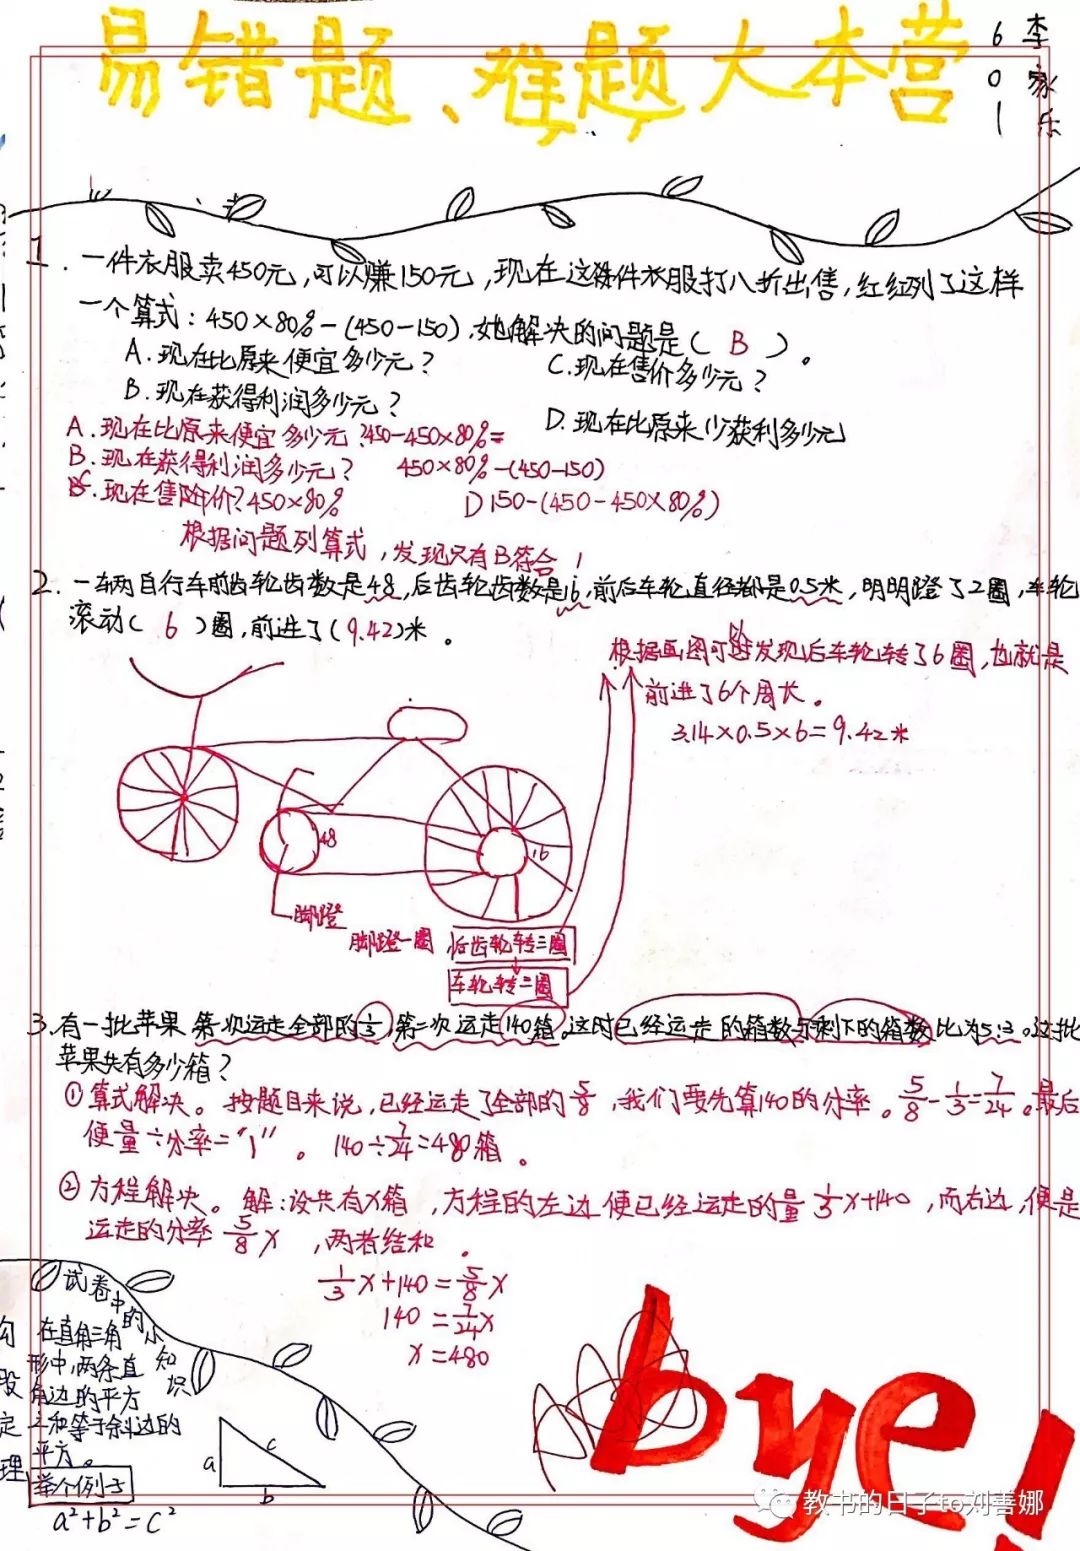 易错题、难题大本营
601 李家乐
1.一件衣服卖450元,可以赚150元,现在这件衣服打八折出售,红红列了这样
一个算式:450×80%-(450-150),她解决的问题是( B )。
A.现在比原来便宜多少元?
C.现在售价多少元?
B.现在获得利润多少元?
D.现在比原来少获利多少元
A.现在比原来便宜多少元?450-450×80%=
B.现在获得利润多少元? 450×80%-(450-150)
C.现在售价?450×80% D 150-(450-450×80%)
根据问题列算式,发现只有B符合!
2.一辆自行车前齿轮齿数是48,后齿轮齿数是16,前后车轮直径都是0.5米,明明蹬了2圈,车轮
滚动( 6 )圈,前进了(9.42)米。
根据画图可以发现后车轮转了6圈,也就是
前进了6个周长。
3.14×0.5×6=9.42米
48
16
脚蹬
脚蹬一圈 后齿轮转三圈
车轮转三圈
3.有一批苹果,第一次运走全部的1/3,第二次运走140箱,这时已经运走的箱数与剩下的箱数比为5:3。这批
苹果共有多少箱?
①算式解决。按题目来说,已经运走了全部的5/8,我们要先算140的分率。5/8-1/3=7/24。最后
便量÷分率="1"。140÷7/24=480箱。
②方程解决。解:设共有x箱,方程的左边便已经运走的量1/3x+140,而右边,便是
运走的分率5/8x,两者结和。
1/3x+140=5/8x
140=7/24x
x=480
试卷中的小知识
勾股定理
在直角三角
形中,两条直
角边的平方
之和等于斜边的
平方。
举个例子
a²+b²=c²
a
c
b
bye!
教书的日子to刘善娜